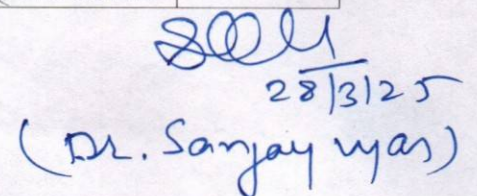 28/3/25
(Dr. Sanjay vyas)